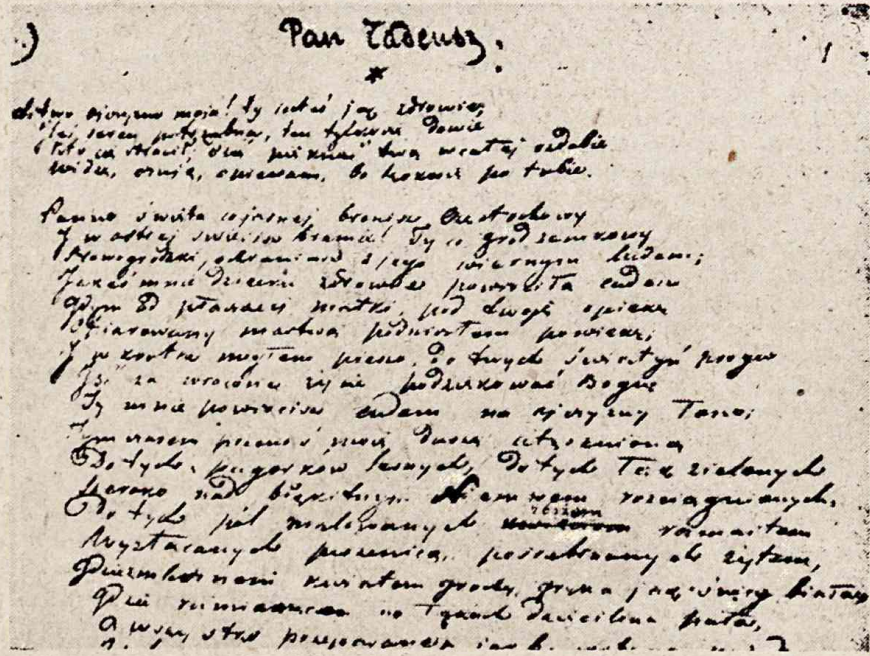 Pan Tadeusz.
Litwo ojczyzno moja! ty jesteś jak zdrowie,
Ileś sercu potrzebna, ten tylko się dowie
Kto cię stracił, dziś piękność twą w całej ozdobie
Widzę, czuję, opiewam, bo tęsknię po tobie.
Panno święta co jasnej bronisz Częstochowy
I w ostrej świecisz bramie! Ty co gród zamkowy
Nowogródzki ochraniasz z jego wiernym ludem;
Jakeś mnie dziecko zdrowiu powróciła cudem
Gdym od płaczącej matki, pod twoję opiekę
Ofiarowany martwą podniosłem powiekę;
I mogłem pieszo, do twych świątyń progu
Iść za wrócone życie podziękować Bogu
Ty mnie powrócisz cudem na ojczyzny łono;
Tymczasem przenoś moją duszę utęsknioną
Do tych pagórków leśnych, do tych łąk zielonych
Szeroko nad błękitnym Niemnem rozciągnionych,
Do tych pól malowanych zbożem rozmaitem
Wyzłacanych pszenicą, posrebrzanych żytem,
Gdzie kwiatem gryka jak śnieg biała
Gdzie łąkach dzięcielina pała,
A wszystko przepasane jak